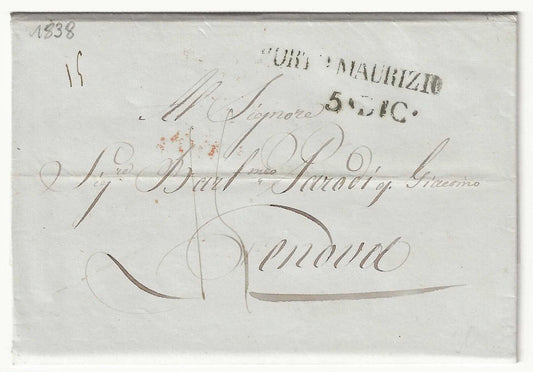 1838
15
PORTO MAURIZIO
5·DIC·
All Signore
Sig.re Bart.meo Parodi q. Giacomo
Genova